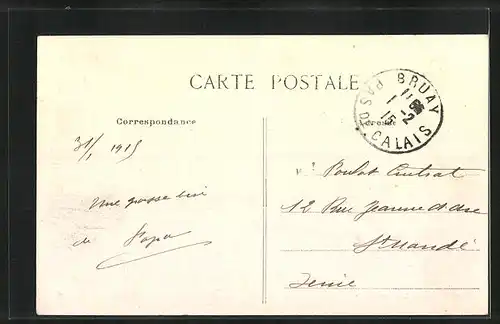 CARTE POSTALE
BRUAY
PAS-DE-CALAIS
11
1 - 2
15
Correspondance
Adresse
31/1 1915
Une grosse bise
de Papa
Poulot Central
12 Rue Jeanne d'Arc
St Mandé
Seine